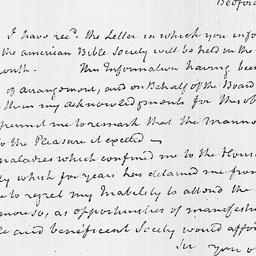 Bedford
I have rec.d the Letter in which you info
the american Bible Society will be held in the
onth. This Information having bee
of arrangement, and on Behalf of the Board
them my acknowledgments for this ob
permit me to remark that the manne
to the Pleasure it excited—
maladies which confined me to the Hous
ly which for years has detained me from
e to regret my Inability to attend the
more so, as opportunities of manifest
le and beneficent Society would affor
Sir your o